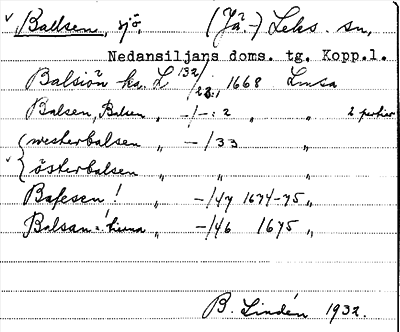 √ Ballsen, sjö. (Jä.-) Leks. sn,
Nedansiljans doms. tg. Kopp.l.
Balsiön ka. L 132/23:1, 1668 Lmsa
Balsen, Balsen „ -/-: 2 „ „ 2 partier
westerbalsen „ -/33 „ „
√ österbalsen „ „ „
Bafesen! „ -/47 1674-75 „
Balsan= „ -/46 1675 „
B. Lindén 1932.